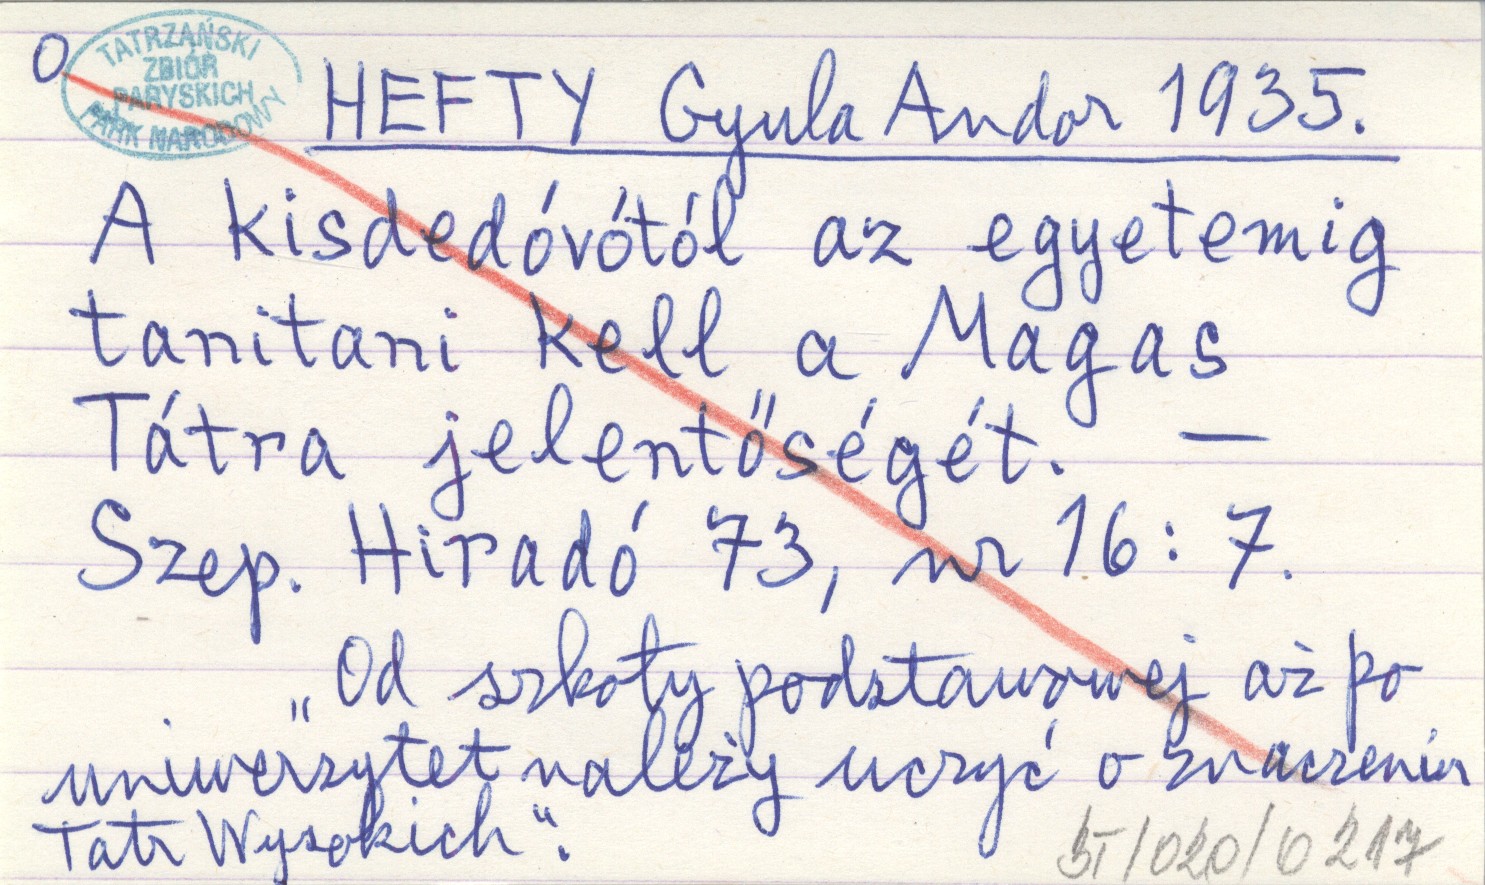 O
TATRZAŃSKI
ZBIÓR
PARYSKICH
PARK NARODOWY
HEFTY Gyula Andor 1935.
A kisdedóvótól az egyetemig
tanitani kell a Magas
Tátra jelentőségét. —
Szep. Hiradó 73, nr 16: 7.
„Od szkoły podstawowej aż po
uniwersytet należy uczyć o znaczeniu
Tatr Wysokich".
BT/020/0217